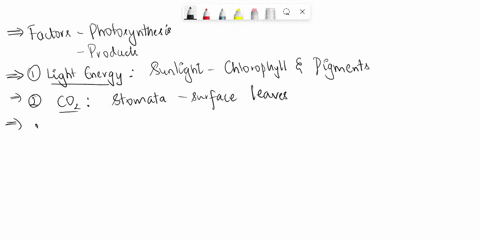 ⇒ Factors - Photosynthesis
- Products
⇒ ① Light Energy : Sunlight - Chlorophyll & Pigments
→ ② CO₂ : Stomata - surface leaves
⇒